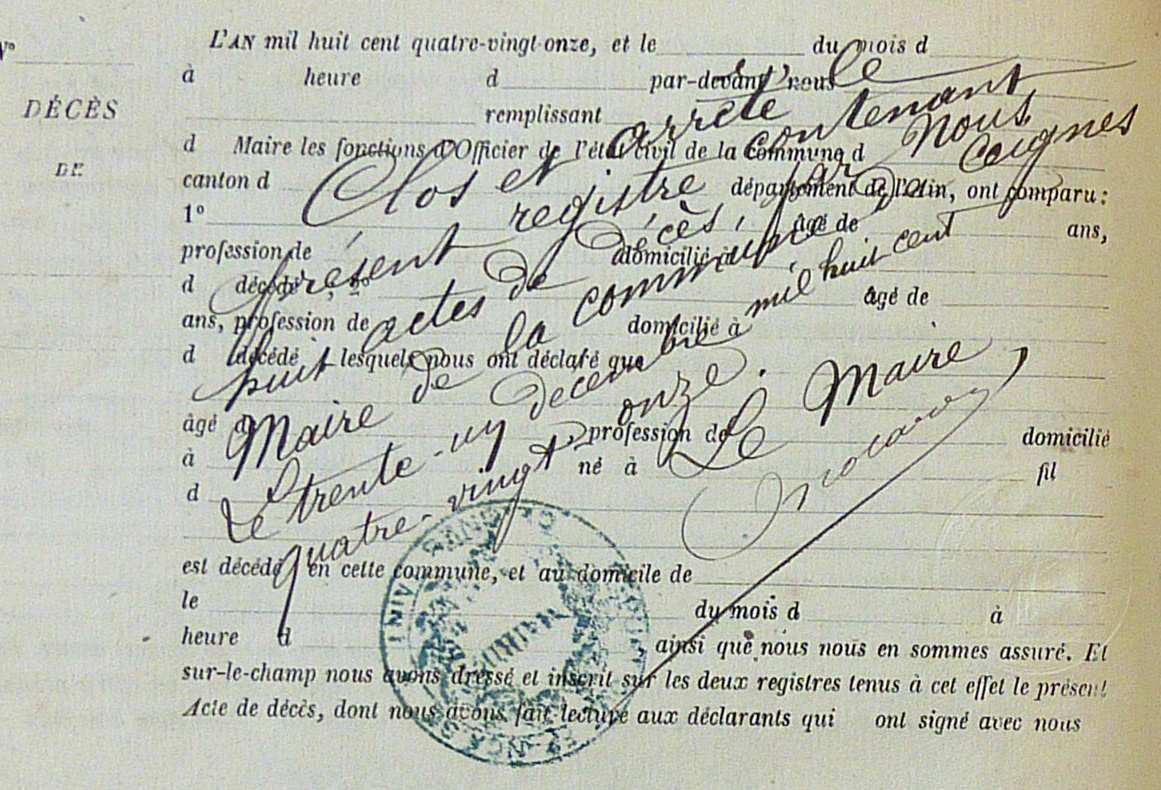 L'AN mil huit cent quatre-vingt-onze, et le du mois d
à heure d par-devant nous
DÉCÈS
remplissant
d Maire les fonctions d'Officier de l'état civil de la commune d
DE
canton d département de l'Ain, ont comparu :
1° âgé de ans,
profession de domicilié à
d décédé , 2° âgé de
ans, profession de domicilié à
d décédé lesquels nous ont déclaré que
âgé d profession de domicilié
à né à fil
d
est décédé en cette commune, et au domicile de
le du mois d à
heure d , ainsi que nous nous en sommes assuré. Et
sur-le-champ nous avons dressé et inscrit sur les deux registres tenus à cet effet le présent
Acte de décès, dont nous avons fait lecture aux déclarants qui ont signé avec nous
Clos et arrêté le
présent registre contenant
huit actes de décès, par Nous,
Maire de la commune de Ceignes
Le trente-un décembre mil huit cent
quatre-vingt onze.
Le Maire,
MAIRIE